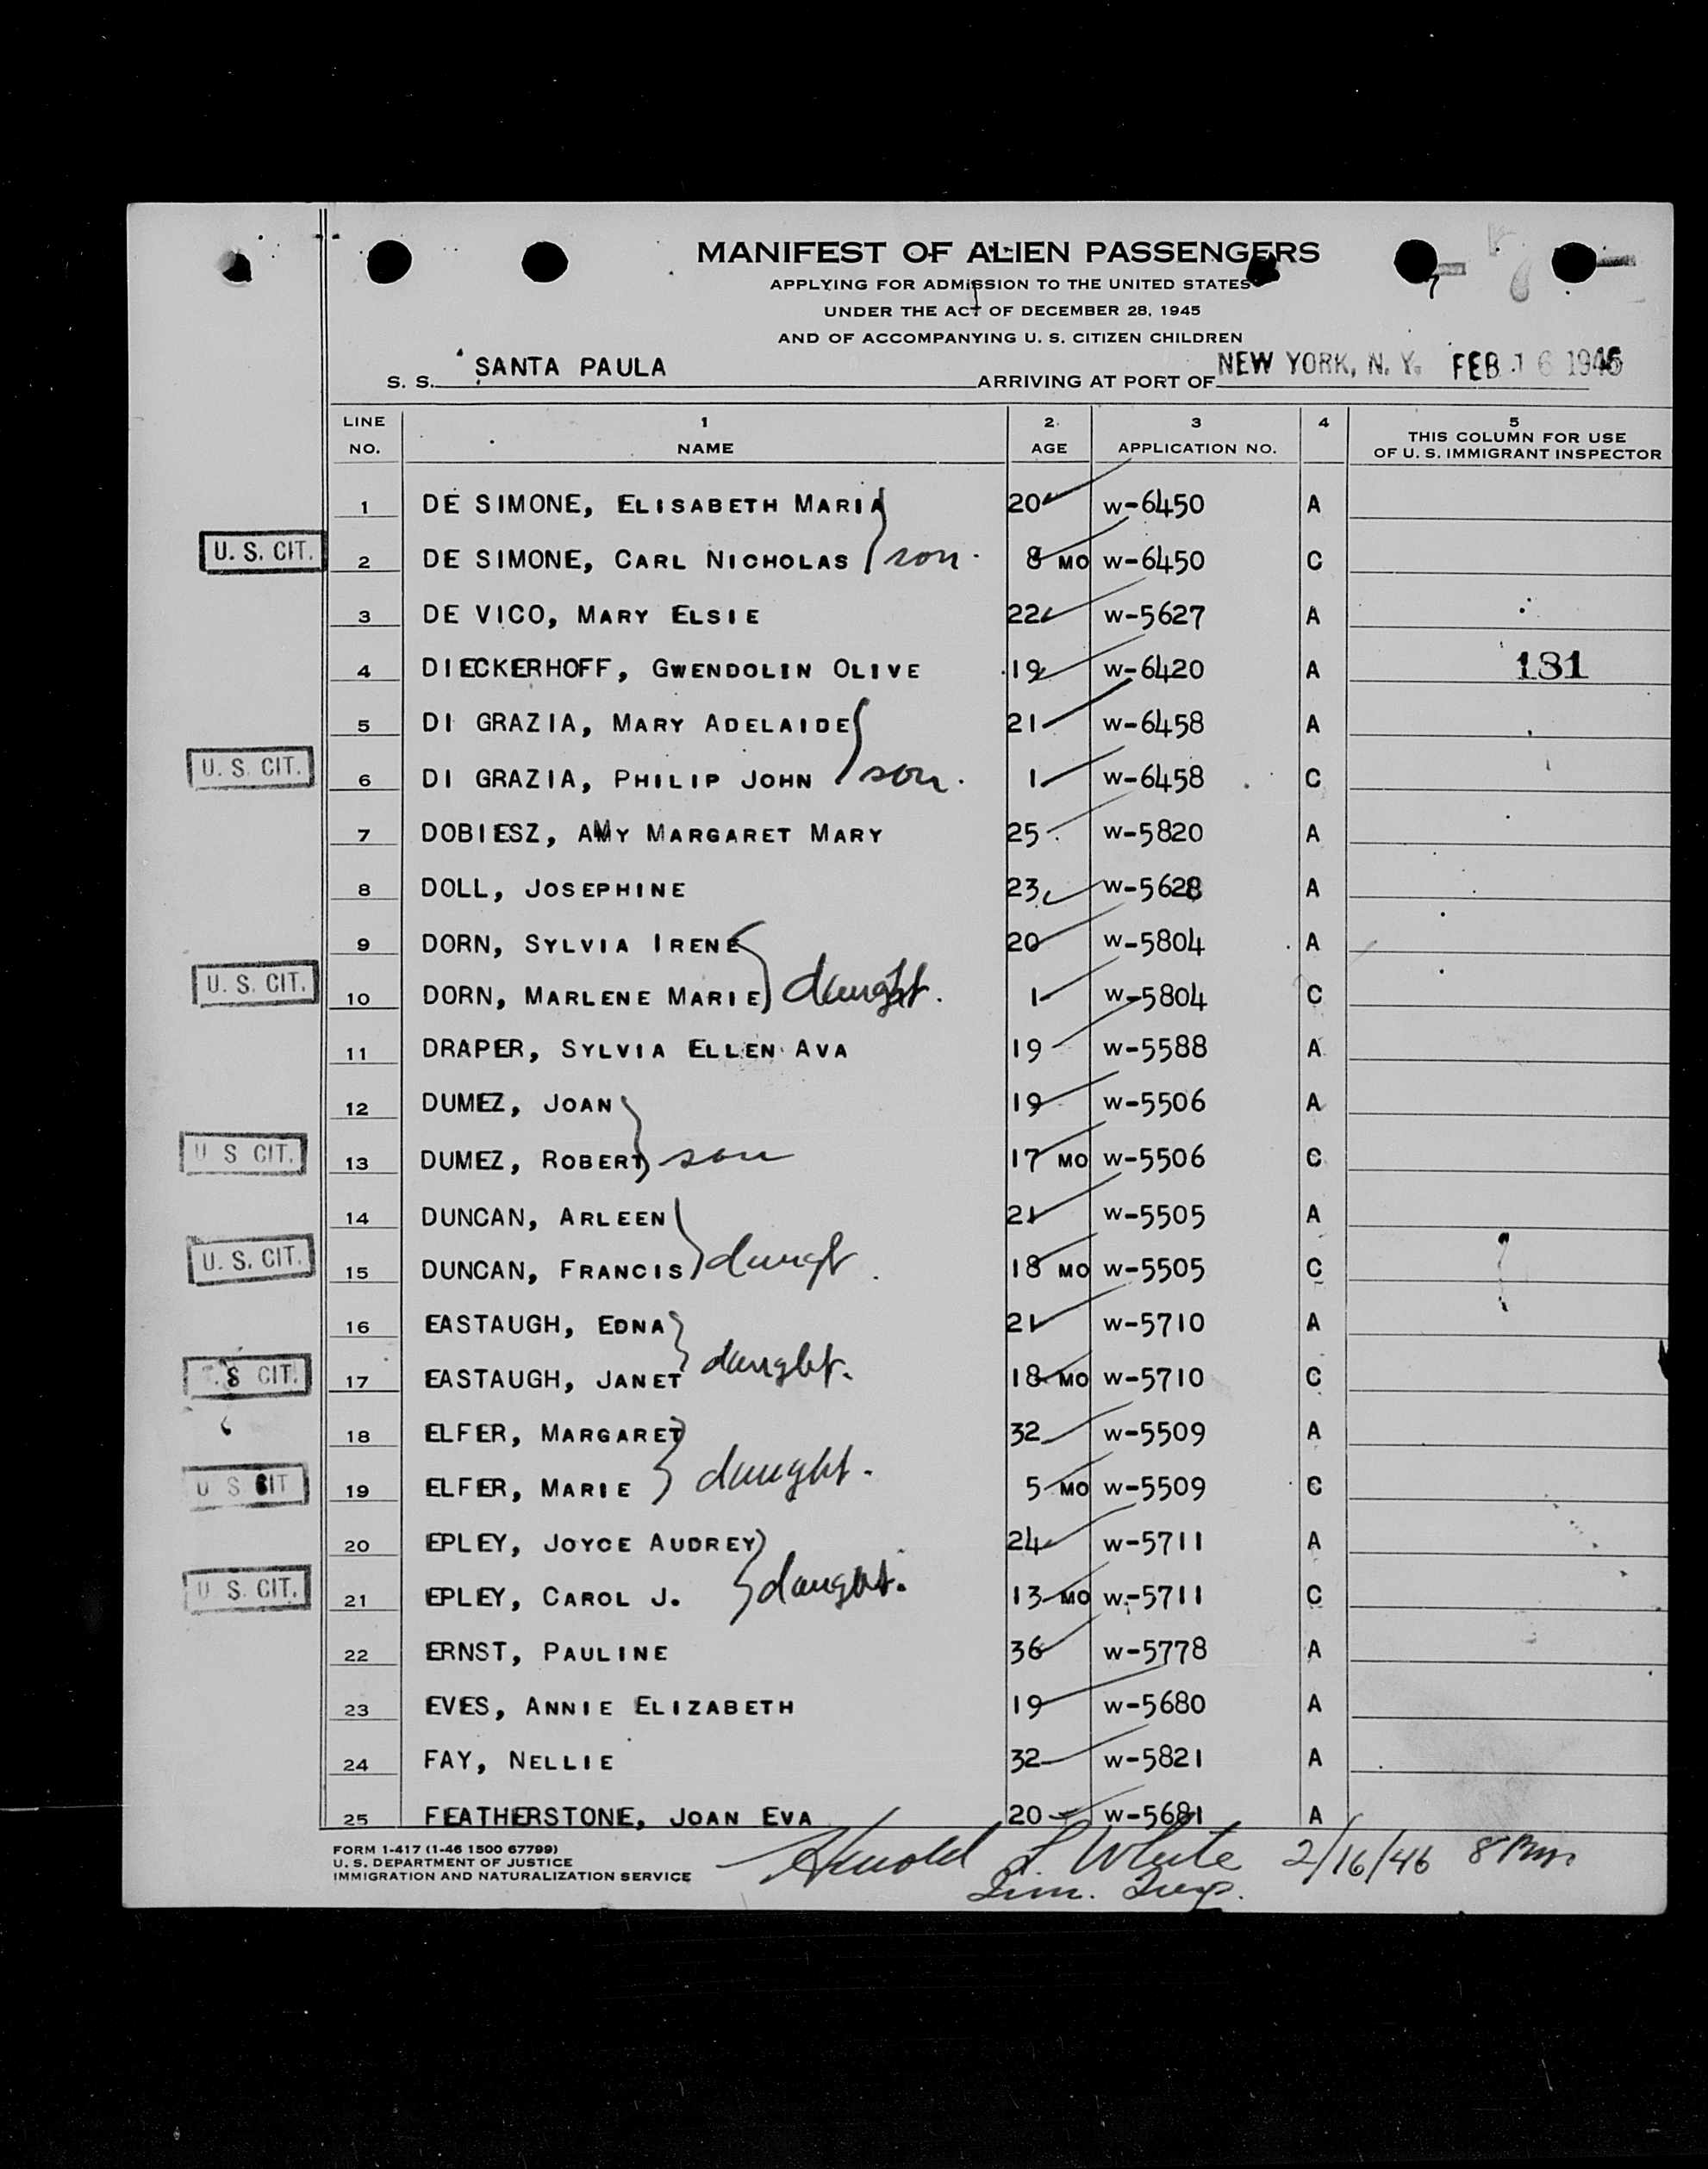 MANIFEST OF ALIEN PASSENGERS
APPLYING FOR ADMISSION TO THE UNITED STATES
UNDER THE ACT OF DECEMBER 28, 1945
AND OF ACCOMPANYING U. S. CITIZEN CHILDREN
S. S. SANTA PAULA ARRIVING AT PORT OF NEW YORK, N. Y. FEB 16 1946
LINE NO. 1 NAME 2 AGE 3 APPLICATION NO. 4 5 THIS COLUMN FOR USE OF U. S. IMMIGRANT INSPECTOR
1 DE SIMONE, ELISABETH MARIA 20 W-6450 A
U. S. CIT. 2 DE SIMONE, CARL NICHOLAS son. 8 MO W-6450 C
3 DE VICO, MARY ELSIE 22 W-5627 A
4 DIECKERHOFF, GWENDOLIN OLIVE 19 W-6420 A 181
5 DI GRAZIA, MARY ADELAIDE 21 W-6458 A
U. S. CIT. 6 DI GRAZIA, PHILIP JOHN son. 1 W-6458 C
7 DOBIESZ, AMY MARGARET MARY 25 W-5820 A
8 DOLL, JOSEPHINE 23 W-5628 A
9 DORN, SYLVIA IRENE 20 W-5804 A
U. S. CIT. 10 DORN, MARLENE MARIE daught. 1 W-5804 C
11 DRAPER, SYLVIA ELLEN AVA 19 W-5588 A
12 DUMEZ, JOAN 19 W-5506 A
U S CIT. 13 DUMEZ, ROBERT son 17 MO W-5506 C
14 DUNCAN, ARLEEN 21 W-5505 A
U. S. CIT. 15 DUNCAN, FRANCIS daught. 18 MO W-5505 C
16 EASTAUGH, EDNA 21 W-5710 A
. S CIT. 17 EASTAUGH, JANET daught. 18 MO W-5710 C
18 ELFER, MARGARET 32 W-5509 A
U S CIT 19 ELFER, MARIE daught. 5 MO W-5509 C
20 EPLEY, JOYCE AUDREY 24 W-5711 A
U S. CIT. 21 EPLEY, CAROL J. daught. 13 MO W-5711 C
22 ERNST, PAULINE 36 W-5778 A
23 EVES, ANNIE ELIZABETH 19 W-5680 A
24 FAY, NELLIE 32 W-5821 A
25 FEATHERSTONE, JOAN EVA 20 W-5681 A
FORM 1-417 (1-46 1500 67799)
U. S. DEPARTMENT OF JUSTICE
IMMIGRATION AND NATURALIZATION SERVICE
Arnold L. White 2/16/46
Imm. Insp.